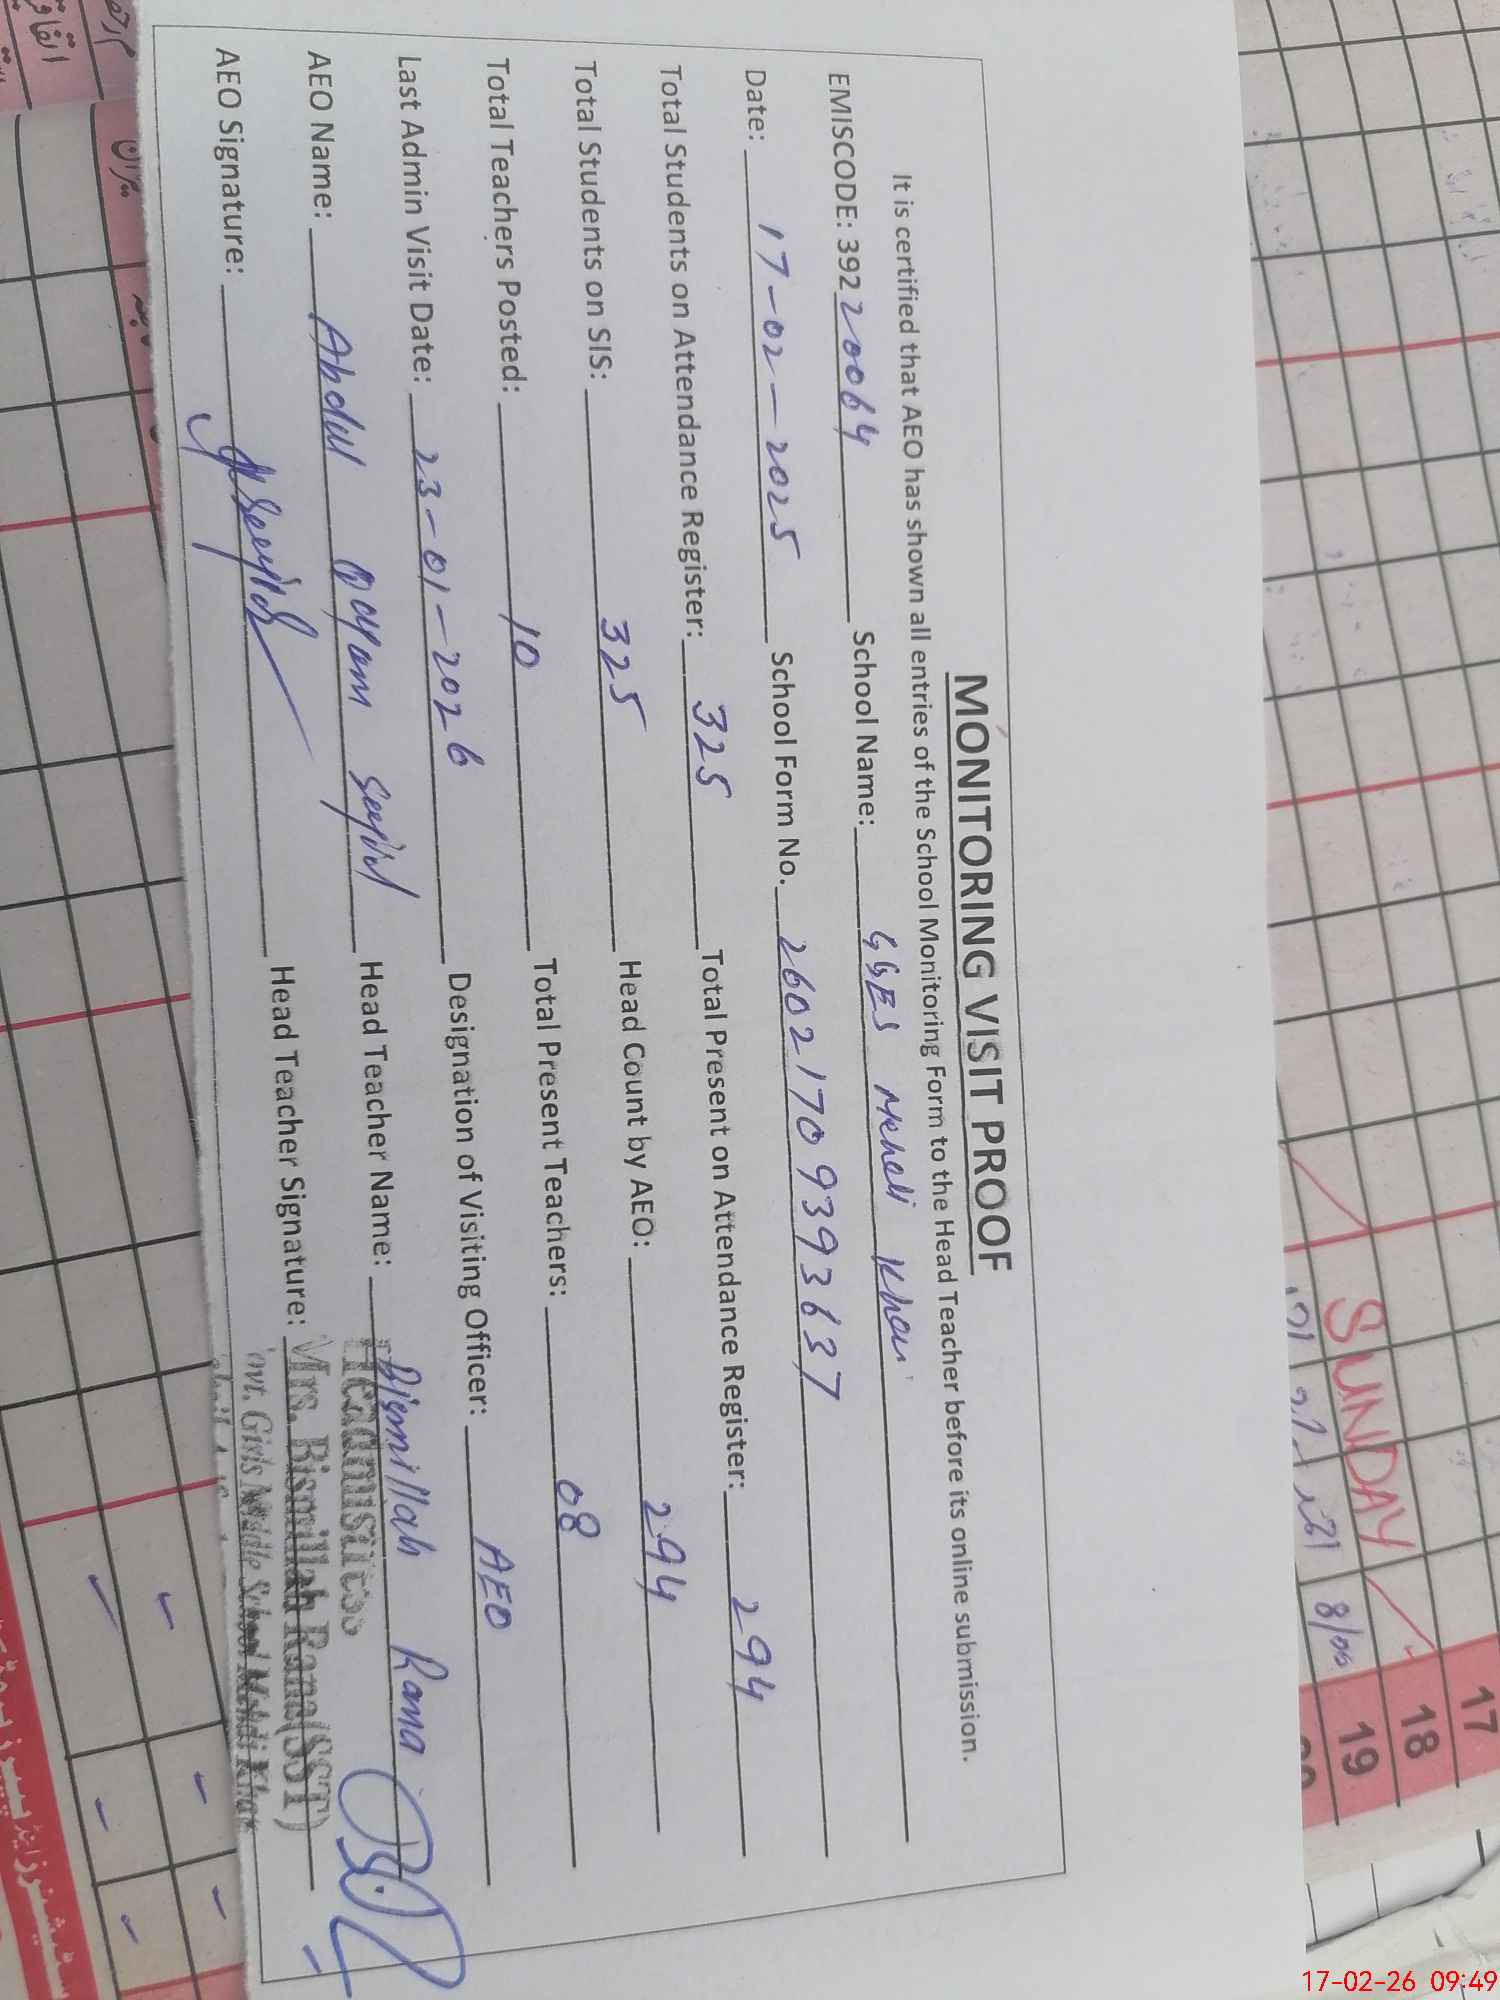 MONITORING VISIT PROOF
It is certified that AEO has shown all entries of the School Monitoring Form to the Head Teacher before its online submission.
EMISCODE: 39220064 School Name: GGES Meheli Khan
Date: 17-02-2025 School Form No. 26021709393637
Total Students on Attendance Register: 325 Total Present on Attendance Register: 294
Total Students on SIS: 325 Head Count by AEO: 294
Total Teachers Posted: 10 Total Present Teachers: 08
Last Admin Visit Date: 23-01-2026 Designation of Visiting Officer: AEO
AEO Name: Abdul Head Teacher Name: Bismillah Rana
AEO Signature: Head Teacher Signature:
Headmistress
Mrs. Bismillah Rana (SST)
Govt. Girls Middle School Mehdi Khan
SUNDAY
17
18
19
17-02-26 09:49